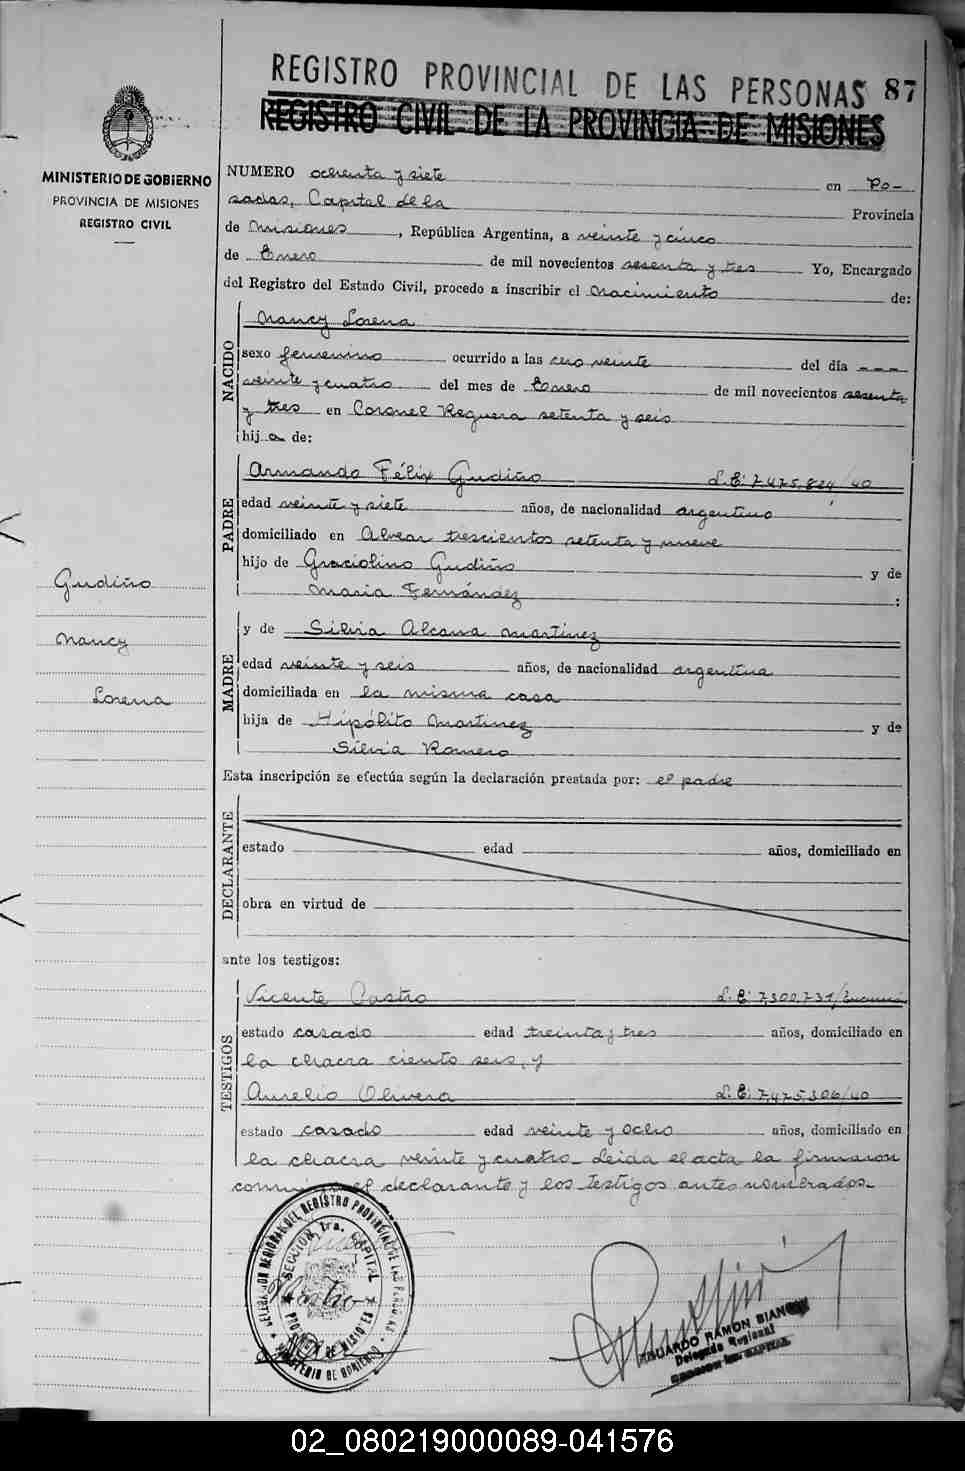 REGISTRO PROVINCIAL DE LAS PERSONAS 87
REGISTRO CIVIL DE LA PROVINCIA DE MISIONES
MINISTERIO DE GOBIERNO
PROVINCIA DE MISIONES
REGISTRO CIVIL
NUMERO ochenta y siete en Po-
sadas, Capital de la Provincia
de Misiones, República Argentina, a veinte y cinco
de Enero de mil novecientos sesenta y tres Yo, Encargado
del Registro del Estado Civil, procedo a inscribir el nacimiento de:
NACIDO
Nancy Lorena
sexo femenino ocurrido a las cero veinte del día ---
veinte y cuatro del mes de Enero de mil novecientos sesenta
y tres en Coronel Reguera setenta y seis
hija de:
PADRE
Armando Félix Gudiño L.E. 7.475.824/40
edad veinte y siete años, de nacionalidad argentino
domiciliado en Alvear trescientos setenta y nueve
hijo de Graciolino Gudiño y de
Maria Fernández :
Gudiño
Nancy
Lorena
MADRE
y de Silvia Alcana Martinez
edad veinte y seis años, de nacionalidad argentina
domiciliada en la misma casa
hija de Hipólito Martinez y de
Silvia Romero
Esta inscripción se efectúa según la declaración prestada por: el padre
DECLARANTE
estado edad años, domiciliado en
obra en virtud de
ante los testigos:
TESTIGOS
Vicente Castro L.E. 7.300.731/
estado casado edad treinta y tres años, domiciliado en
la chacra ciento seis, y
Aurelio Olivera L.E. 7.475.306/40
estado casado edad veinte y ocho años, domiciliado en
la chacra veinte y cuatro. Leida el acta la firmaron
conmigo el declarante y los testigos antes nombrados.
DELEGACION REGIONAL DEL REGISTRO PROVINCIAL DE LAS PERSONAS
SECCION 1ra. CAPITAL
PROVINCIA DE MISIONES
MINISTERIO DE GOBIERNO
EDUARDO RAMON BIANCHI
Delegado Regional
02_080219000089-041576